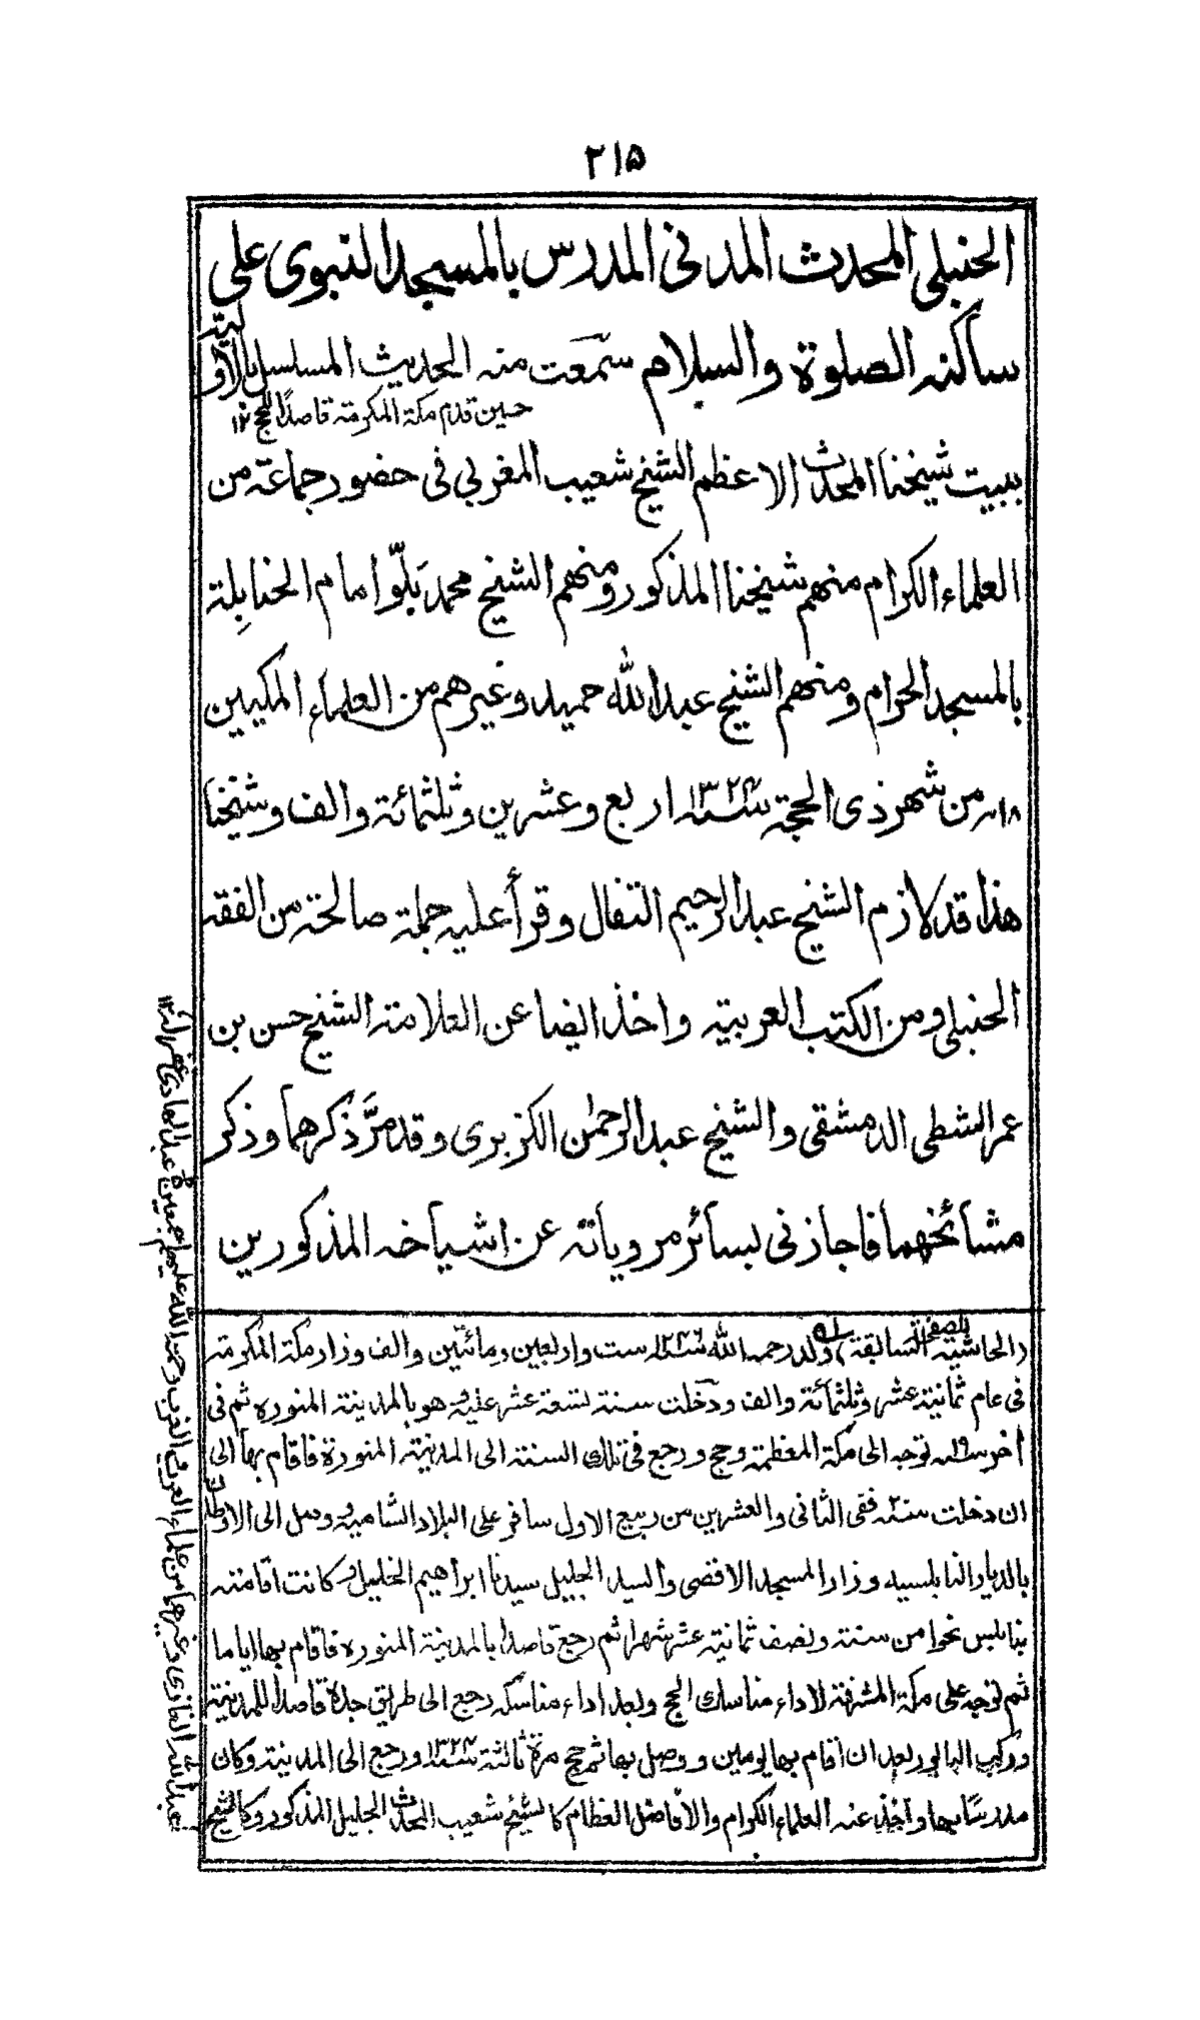 ٢١٥
الحنبلي المحدث المدني المدرس بالمسجد النبوى على
ساكنه الصلوة والسلام سمعت منه الحديث المسلسل بالاولية
حين قدم مكة المكرمة قاصدًا للحج ١٢
ببيت شيخنا المحدث الاعظم الشيخ شعيب المغربي في حضور جماعة من
العلماء الكرام منهم شيخنا المذكور ومنهم الشيخ محمد بَلّو امام الحنابِلة
بالمسجد الحرام ومنهم الشيخ عبدالله حميد وغيرهم من العلماء المكيين
١٨ من شهر ذى الحجة سنة ١٣٢٤ اربع وعشرين وثلثمائة والف وشيخنا
هذا قد لازم الشيخ عبدالرحيم التفال وقرأ عليه جملة صالحة من الفقه
الحنبلي ومن الكتب العربية واخذ ايضا عن العلامة الشيخ حسن بن
عمر الشطي الدمشقي والشيخ عبدالرحمٰن الكزبرى وقد مرَّ ذكرهما وذكر
مشائخهما فاجازني بسائر مروياته عن اشياخه المذكورين
(الحاشية للصفحة السابقة) ولد رحمه الله سنة ١٢٤٦ ست واربعين ومائتين والف وزار مكة المكرمة
في عام ثمانية عشر وثلثمائة والف ودخلت سنة تسعة عشر عليه وهو بالمدينة المنوره ثم في
أخر سنة ١٩ توجه الى مكة المعظمة وحج ورجع في تلك السنة الى المدينة المنورة فاقام بها الى
ان دخلت سنة ففي الثاني والعشرين من ربيع الاول سافر على البلاد الشامية وصل الى الاوطان
بالديار النابلسيه وزار المسجد الاقصى والسيد الجليل سيدنا ابراهيم الخليل وكانت اقامته
بنابلس نحوا من سنة ونصف ثمانية عشر شهرا ثم رجع قاصدا بالمدينة المنوره فاقام بها اياما
ثم توجه على مكة المشرفة لاداء مناسك الحج وبعد اداء مناسكه رجع الى طريق جدة قاصدا للمدينة
وركب البابور بعد ان اقام بها يومين ووصل بها ثم حج مرة ثالثة سنة ١٣٢٤ ورجع الى المدينة وكان
مدرسًا بها واخذ عنه العلماء الكرام والافاضل العظام كالشيخ شعيب المحدث الجليل المذكور وكالشيخ
عبدالله الغازى وغيرهما من علماء العرب والغرب رحمة الله عليهم اجمعين عبدالهادى غفر له ١٢